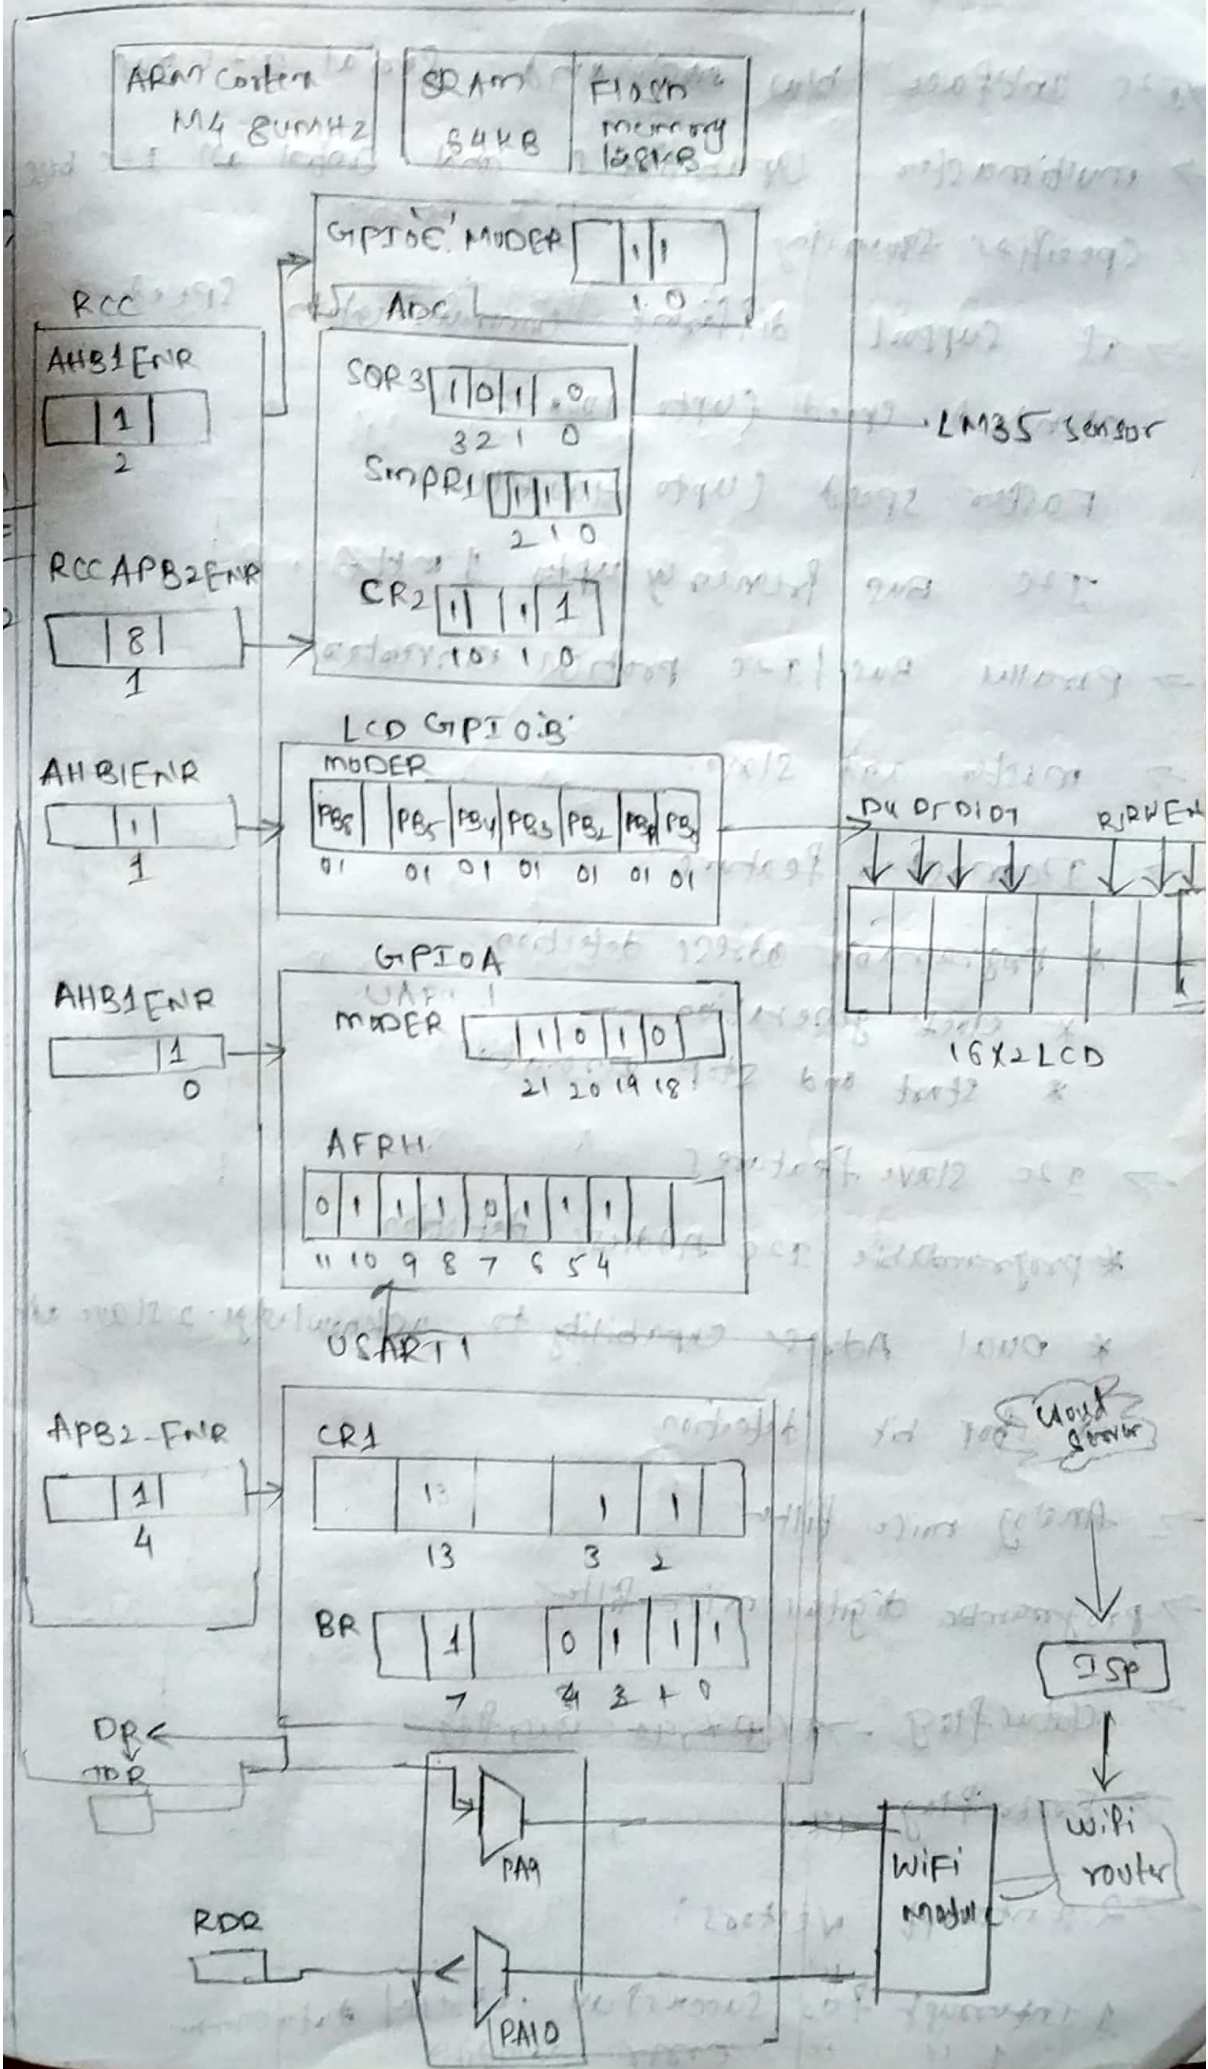 ARM Cortex
M4 84MHz
SRAM
64KB
Flash
memory
128KB
GPIO'C' MODER
1 1
1 0
ADC
RCC
AHB1ENR
1
2
SQR3 1 0 1 0
3 2 1 0
SMPR1 1 1 1
2 1 0
LM35 Sensor
RCC APB2ENR
8
1
CR2 1 1 1
10 1 0
LCD GPIO'B'
MODER
AHB1ENR
1
1
PB5 PB4 PB3 PB2
01 01 01 01 01 01 01
RS RW EN
16X2 LCD
GPIOA
AHB1ENR
1
0
MODER 1 0 1 0
21 20 19 18
AFRH
0 1 1 1 0 1 1 1
11 10 9 8 7 6 5 4
USART1
APB2-ENR
1
4
CR1
13 1 1
13 3 2
BR 1 0 1 1 1
7
Cloud
Server
ISP
DR
TDR
PA9
WiFi
Modul
WiFi
router
RDR
PA10